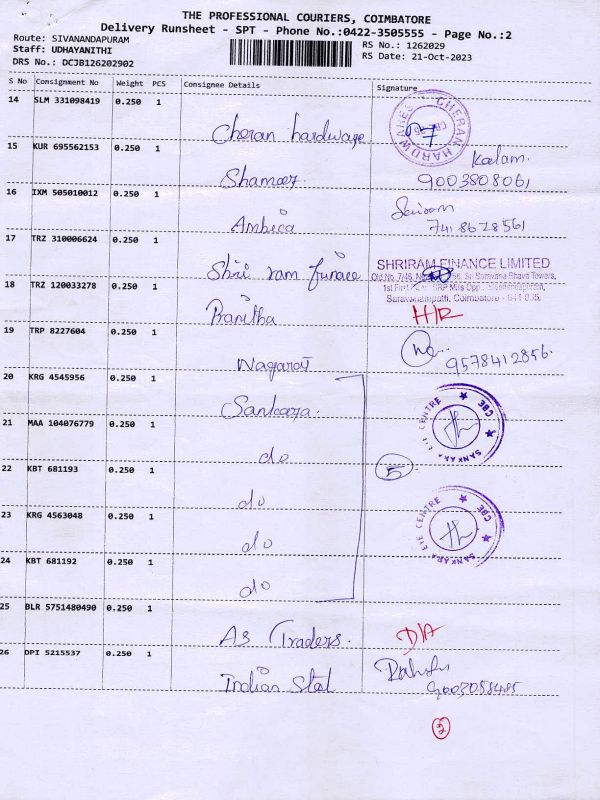 THE PROFESSIONAL COURIERS, COIMBATORE
Delivery Runsheet - SPT - Phone No.:0422-3505555 - Page No.:2
Route: SIVANANDAPURAM
RS No.: 1262029
Staff: UDHAYANITHI
RS Date: 21-Oct-2023
DRS No.: DCJB126202902
S No Consignment No Weight PCS Consignee Details Signature
14 SLM 331098419 0.250 1 Cheran hardware
CHERAN HARDWARES
15 KUR 695562153 0.250 1 Shameer Kalam
9003808061
16 IXM 505010012 0.250 1 Ambica Sriram
7418678561
17 TRZ 310006624 0.250 1 Shri ram finance
SHRIRAM FINANCE LIMITED
Sri Saravana Bhava Towers,
Saravanampatti, Coimbatore - 641 035.
18 TRZ 120033278 0.250 1 Pranitha H/R
19 TRP 8227604 0.250 1 Nagaraj
9578412856
20 KRG 4545956 0.250 1 Sankara
SANKARA EYE CENTRE CBE
21 MAA 104076779 0.250 1 do
22 KBT 681193 0.250 1 do 5
23 KRG 4563048 0.250 1 do
SANKARA EYE CENTRE CBE
24 KBT 681192 0.250 1 do
25 BLR 5751480490 0.250 1 As Traders. D/A
26 DPI 5215537 0.250 1 Indian Stal
9003058485
2